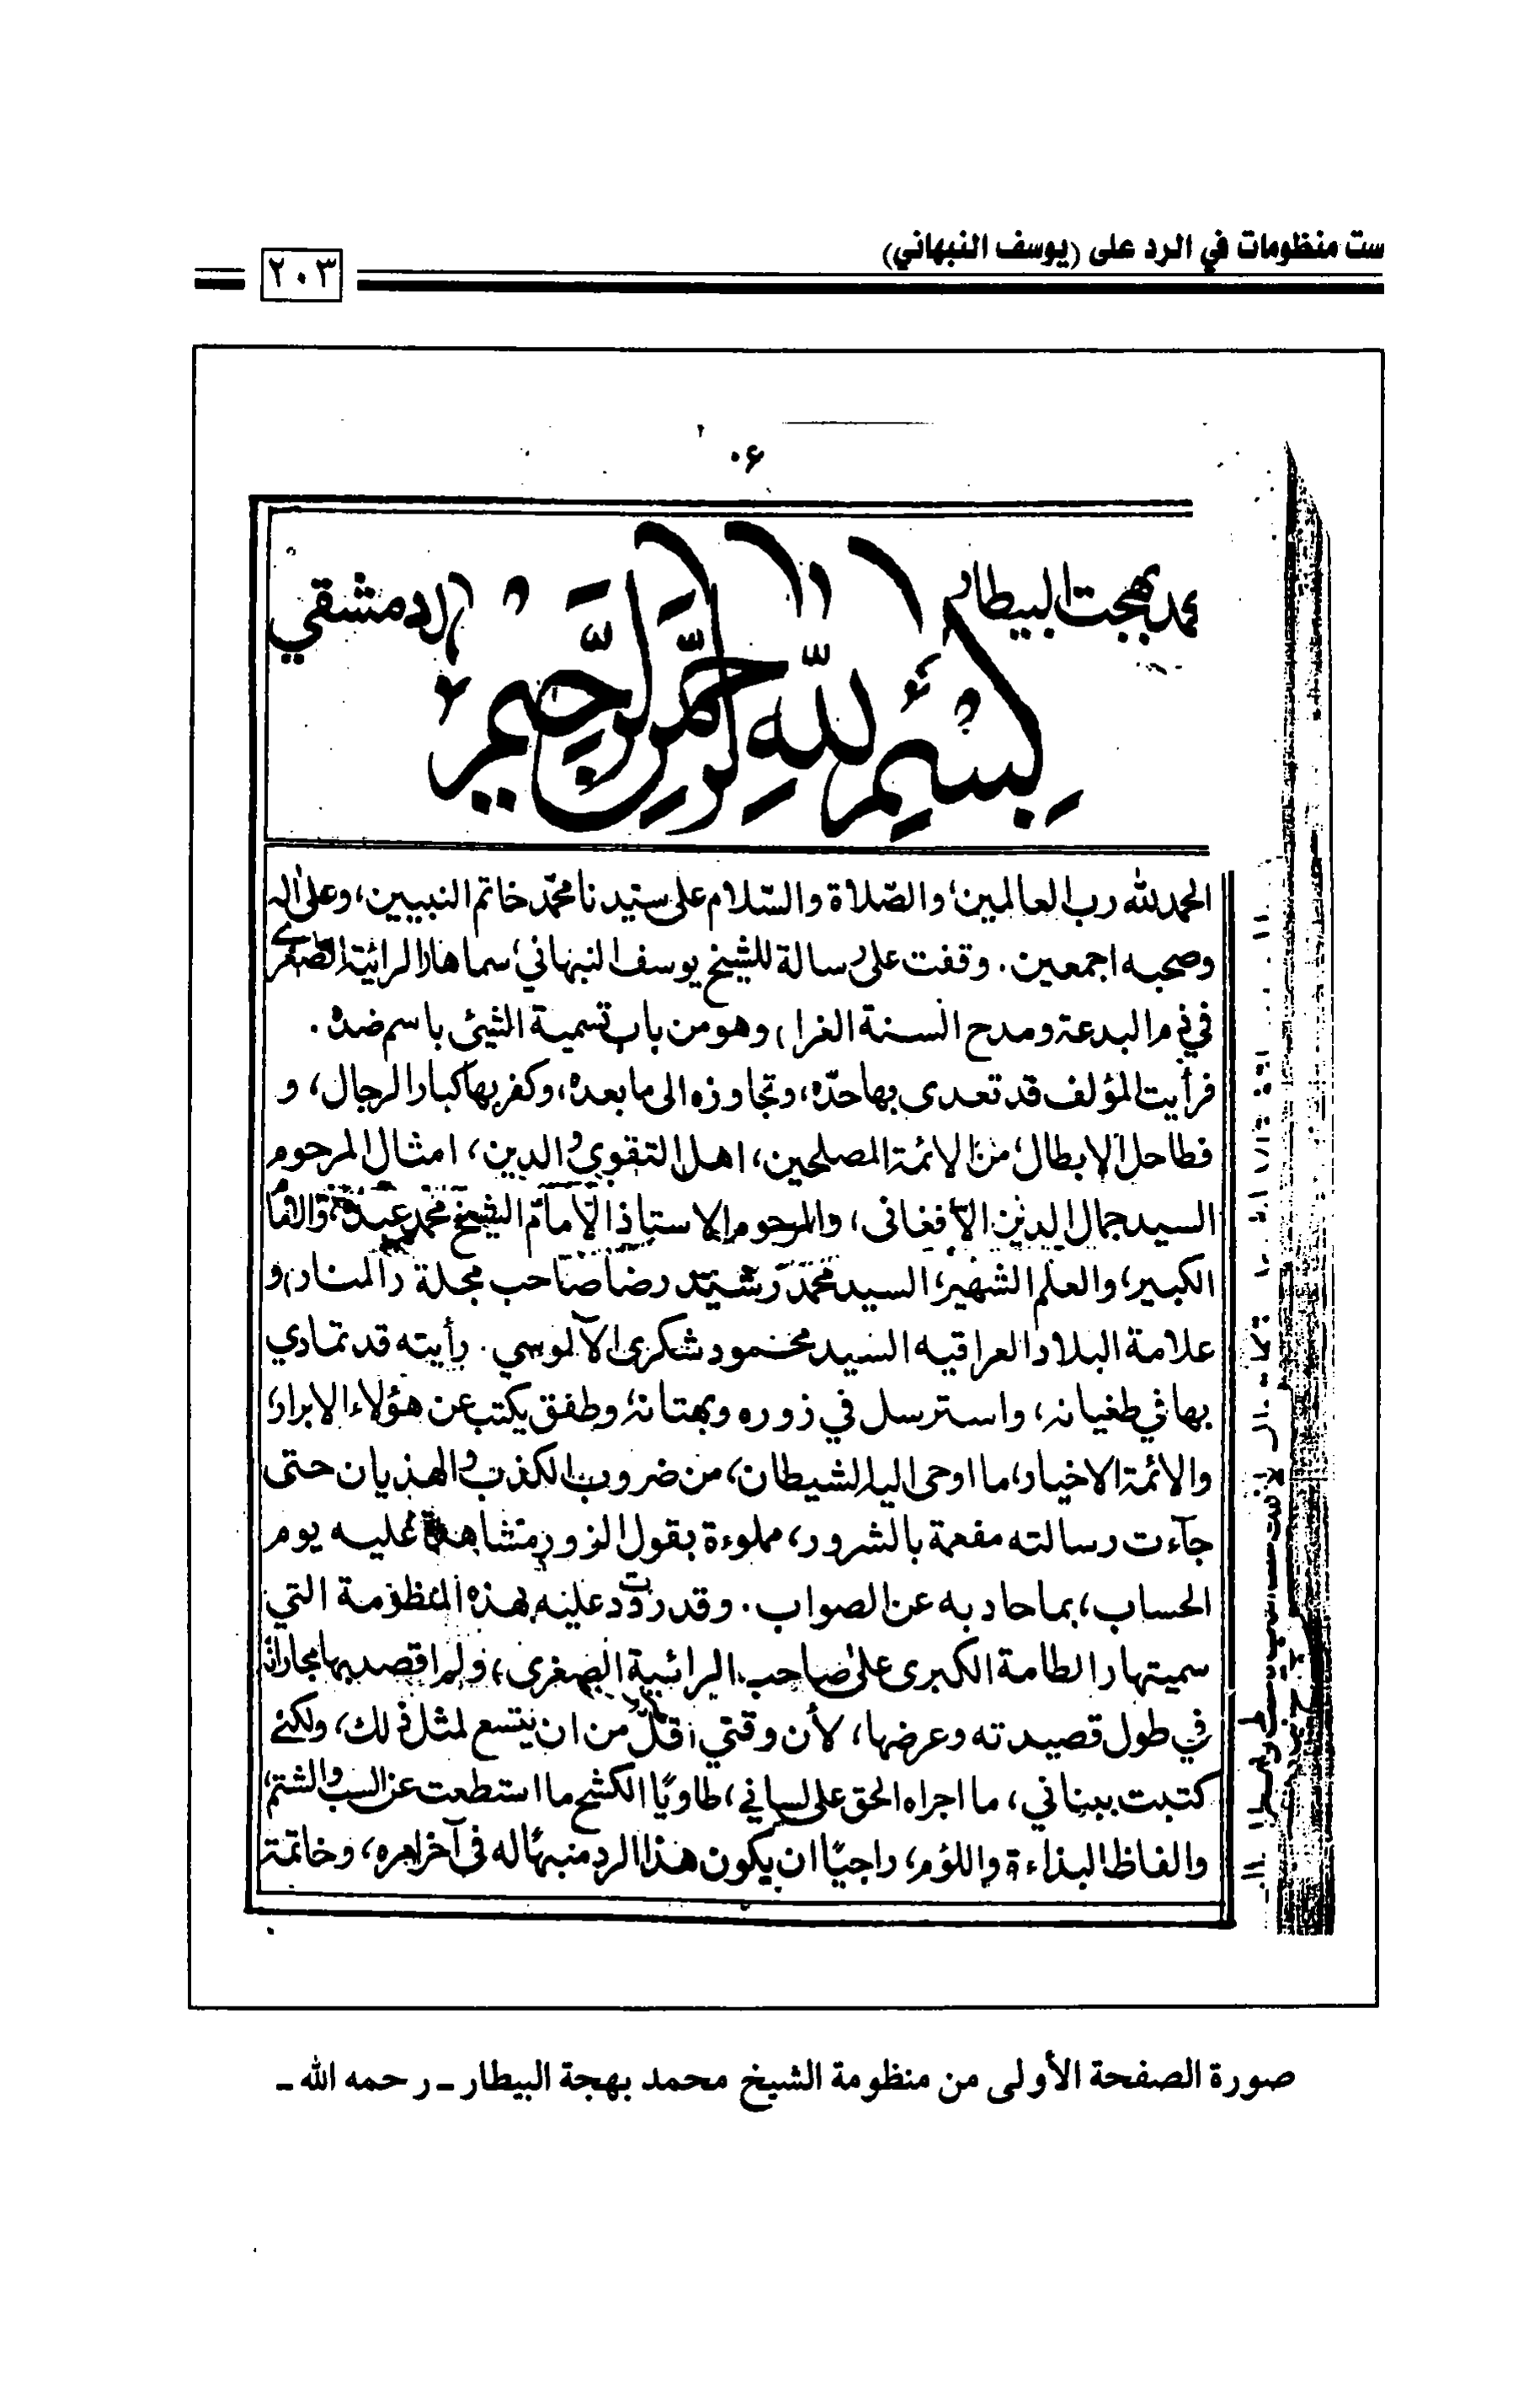 ست منظومات في الرد على (يوسف النبهاني)
٢٠٣
محمد بهجت البيطار
الدمشقي
بسم الله الرحمن الرحيم
الحمد لله رب العالمين، والصّلاة والسّلام على سيّدنا محمّد خاتم النبيين، وعلى اله
وصحبه اجمعين. وقفت على رسالة للشيخ يوسف النبهاني، سماها (الرائية الصغرى
في ذم البدعة ومدح السنة الغرا) وهو من باب تسمية الشيئ باسم ضده.
فرأيت المؤلف قد تعدى بها حدّه، وتجاوزه الى ما بعده، وكفر بها كبار الرجال، و
فطاحل الابطال، من الائمة المصلحين، اهل التقوى والدين، امثال المرحوم
السيد جمال الدين الأفغانى، والمرحوم الاستاذ الإمام الشيخ محمد عبده،
الكبير، والعلم الشهير، السيد محمد رشيد رضا صاحب مجلة (المنار) و
علامة البلاد العراقيه السيد محمود شكرى الآلوسي. رأيته قد تمادي
بها في طغيانه، واسترسل في زوره وبهتانه، وطفق يكتب عن هؤلاء الابرار،
والائمة الاخيار، ما اوحى اليه الشيطان، من ضروب الكذب والهذيان حتى
جآءت رسالته مفعمة بالشرور، مملوءة بقول الزور، متشاهدة عليه يوم
الحساب، بما حاد به عن الصواب. وقد رددت عليه بهذه المنظومة التي
سميتها (الطامة الكبرى على صاحب الرائية الصغرى)، ولم اقصد بها مجاراته
في طول قصيدته وعرضها، لأن وقتي اقل من ان يتسع لمثل ذلك، ولكني
كتبت ببناني، ما اجراه الحق على لساني، طاويًا الكشح ما استطعت عن السب والشتم،
والفاظ البذاءة واللؤم، راجيًا ان يكون هذا الرد منبهًا له فى آخر امره، وخاتمة
صورة الصفحة الأولى من منظومة الشيخ محمد بهجة البيطار ـ رحمه الله ـ